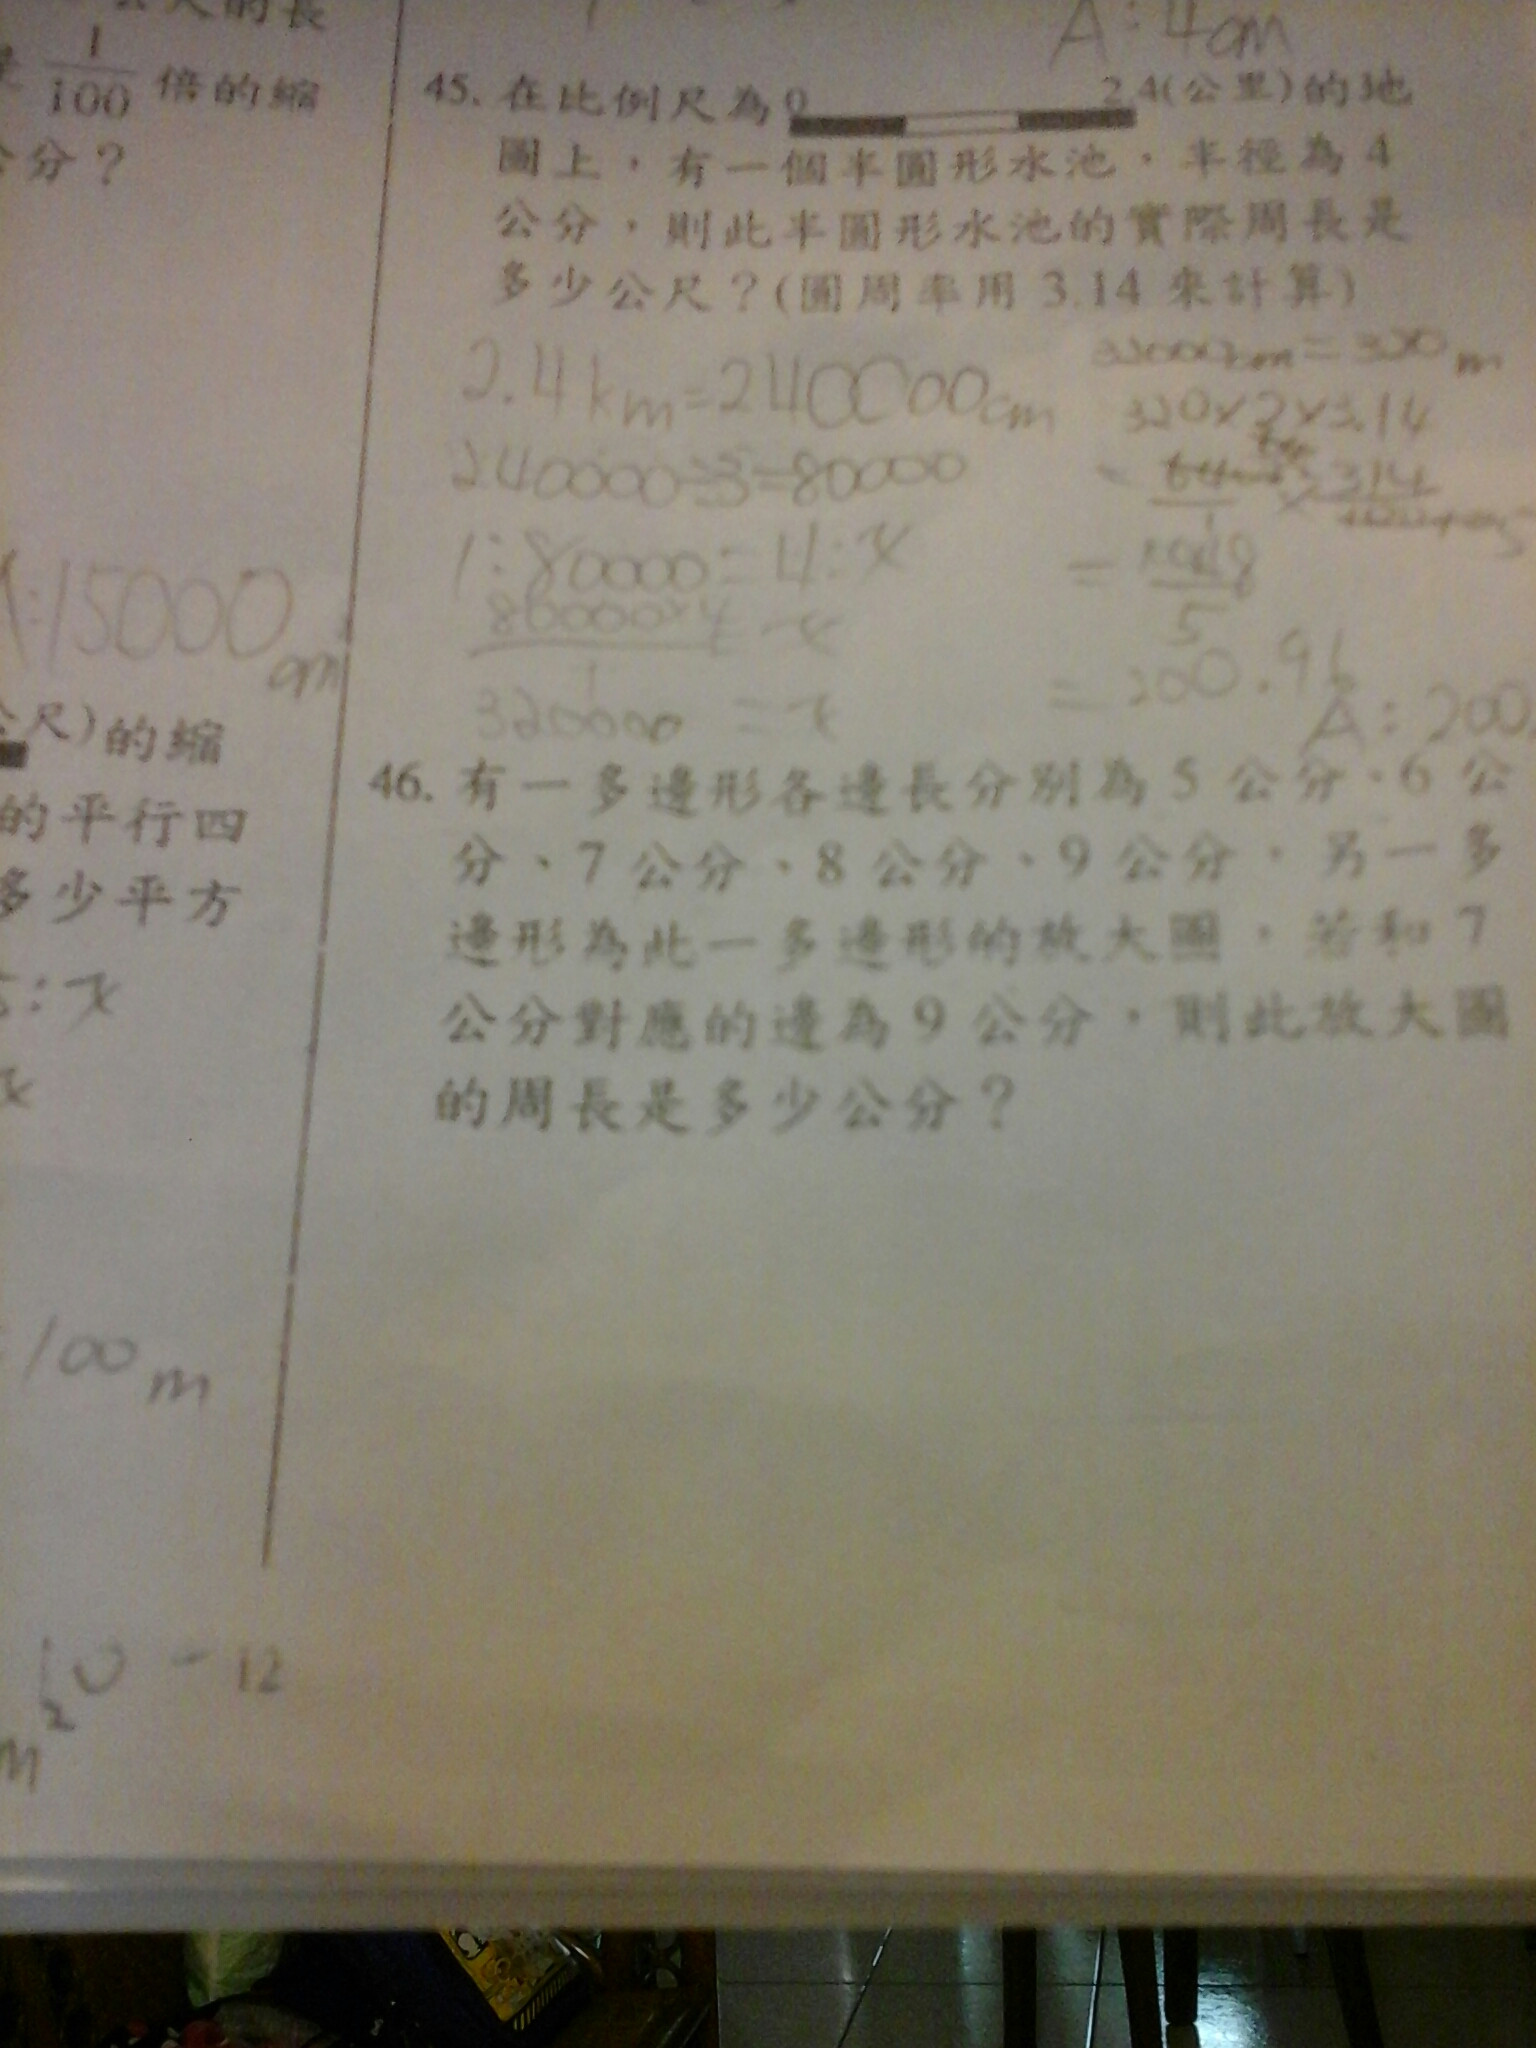 公尺的長
1
100 倍的縮
公分？
A:15000
cm
公尺)的縮
的平行四
多少平方
5:x
x
100 m
12
A:4cm
45. 在比例尺為 0 2.4(公里)的地
圖上，有一個半圓形水池，半徑為 4
公分，則此半圓形水池的實際周長是
多少公尺？(圓周率用 3.14 來計算)
2.4km=240000cm
240000÷3=80000
1:80000=4:x
80000×4 = x
1
320000 = x
320×2×3.14
314
1
5
= 200.96
A:200
46. 有一多邊形各邊長分別為 5 公分、6 公
分、7 公分、8 公分、9 公分，另一多
邊形為此一多邊形的放大圖，若和 7
公分對應的邊為 9 公分，則此放大圖
的周長是多少公分？